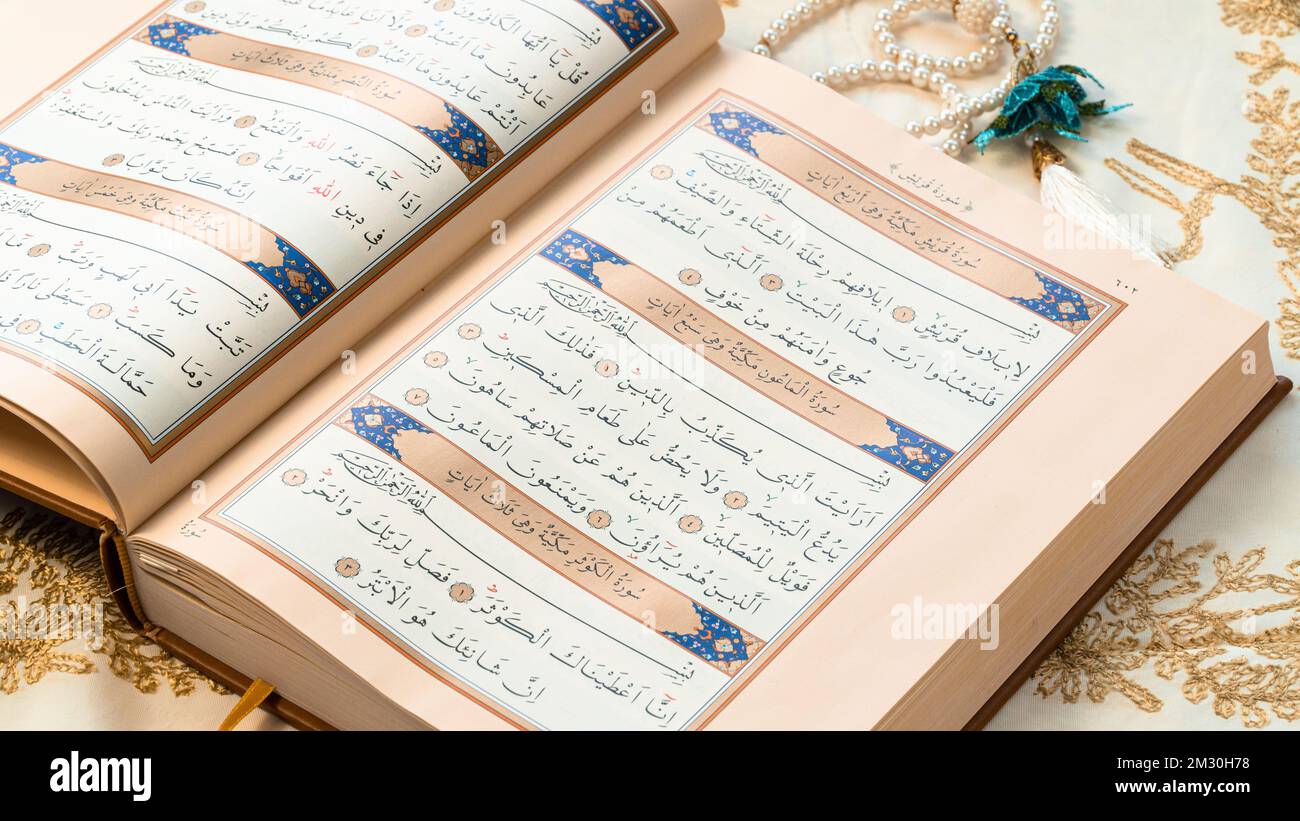 ﴿ سُورَةُ قُرَيْشٍ ﴾
٦٠٢
سُورَةُ قُرَيْشٍ مَكِّيَّةٌ وَهِيَ اَرْبَعُ اٰيَاتٍ
بِسْمِ اللّٰهِ الرَّحْمٰنِ الرَّحِيمِ
لِاِيلَافِ قُرَيْشٍ ١ اِيلَافِهِمْ رِحْلَةَ الشِّتَٓاءِ وَالصَّيْفِ ٢
فَلْيَعْبُدُوا رَبَّ هٰذَا الْبَيْتِ ٣ اَلَّذِٓي اَطْعَمَهُمْ مِنْ
جُوعٍ وَاٰمَنَهُمْ مِنْ خَوْفٍ ٤
سُورَةُ الْمَاعُونِ مَكِّيَّةٌ وَهِيَ سَبْعُ اٰيَاتٍ
بِسْمِ اللّٰهِ الرَّحْمٰنِ الرَّحِيمِ
اَرَاَيْتَ الَّذِي يُكَذِّبُ بِالدِّينِ ١ فَذٰلِكَ الَّذِي
يَدُعُّ الْيَتِيمَ ٢ وَلَا يَحُضُّ عَلٰى طَعَامِ الْمِسْكِينِ ٣
فَوَيْلٌ لِلْمُصَلِّينَ ٤ اَلَّذِينَ هُمْ عَنْ صَلَاتِهِمْ سَاهُونَ ٥
اَلَّذِينَ هُمْ يُرَٓاؤُ۫نَ ٦ وَيَمْنَعُونَ الْمَاعُونَ ٧
سُورَةُ الْكَوْثَرِ مَكِّيَّةٌ وَهِيَ ثَلَاثُ اٰيَاتٍ
بِسْمِ اللّٰهِ الرَّحْمٰنِ الرَّحِيمِ
اِنَّٓا اَعْطَيْنَاكَ الْكَوْثَرَ ١ فَصَلِّ لِرَبِّكَ وَانْحَرْ ٢
اِنَّ شَانِئَكَ هُوَ الْاَبْتَرُ ٣
قُلْ يَٓا اَيُّهَا الْكَافِرُونَ ١ لَٓا اَعْبُدُ مَا
اَنْتُمْ عَابِدُونَ مَٓا اَعْبُدُ
سُورَةُ النَّصْرِ مَدَنِيَّةٌ وَهِيَ ثَلَاثُ اٰيَاتٍ
بِسْمِ اللّٰهِ الرَّحْمٰنِ الرَّحِيمِ
اِذَا جَٓاءَ نَصْرُ اللّٰهِ وَالْفَتْحُ ١ وَرَاَيْتَ النَّاسَ يَدْخُلُونَ
فِي دِينِ اللّٰهِ اَفْوَاجًا ٢ فَسَبِّحْ بِحَمْدِ رَبِّكَ وَاسْتَغْفِرْهُ
اِنَّهُ كَانَ تَوَّابًا ٣
مَكِّيَّةٌ وَهِيَ خَمْسُ اٰيَاتٍ
بِسْمِ اللّٰهِ الرَّحْمٰنِ
تَبَّتْ يَدَٓا اَبِي لَهَبٍ وَتَبَّ ١ مَٓا
وَمَا كَسَبَ ٢ سَيَصْلٰى نَارًا
حَمَّالَةَ الْحَطَبِ ٤
alamy
alamy
Image ID: 2M30H78
www.alamy.com